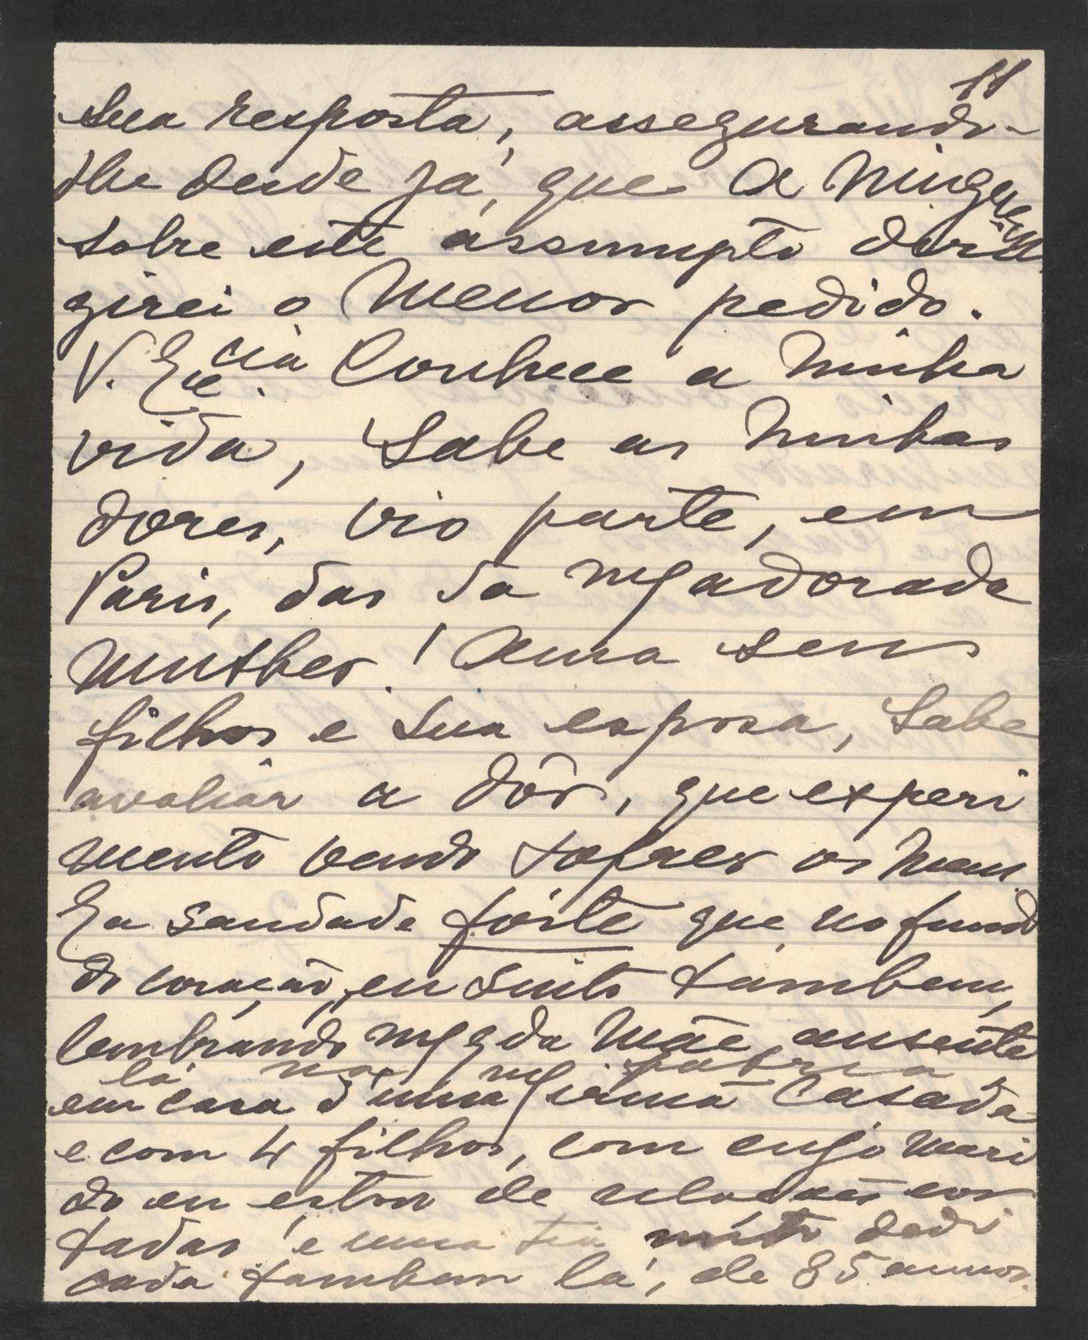 11
sua resposta, assegurando-
lhe desde já, que a Ninguem
sobre este assumpto deri
girei o menor pedido.
V. Excia conhece a minha
vida, sabe as minhas
dores, vio parte, em
Paris, das da mª adorada
mulher! Ama seus
filhos e sua esposa, sabe
avaliár a dôr, que experi
mento vendo sofrer os meus
E a saudade forte que, no fundo
do coração, eu sinto tambem,
lembrando mª qda Mãe, ausente
lá na patria
em casa d'uma mª irmã casada
e com 4 filhos, com cujo mari
do eu estou de relações cor
tadas e uma tia mto dedi
cada tambem lá, de 85 annos.